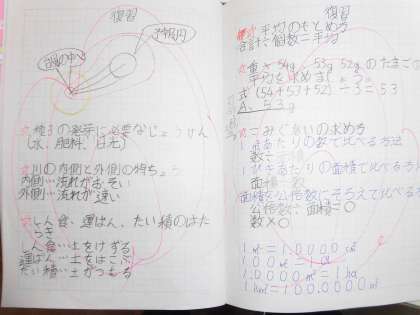 復習
子宮内
☆種子の発芽に必要なじょうけん
(水、肥料、日光)
☆川の内側と外側の特ちょう
内側…流れがおそい
外側…流れが速い
☆しん食、運ぱん、たい積のはた
らき
しん食…土をけずる
運ぱん…土をはこぶ
たい積…土がつもる
復習
☆平均のもとめ方
合計÷個数=平均
☆重さ54g 53g 52gのたまごの
平均を求めましょう。
式(54+53+52)÷3=53
A. 53g
☆こみぐあいの求め方
1 あたりの数で比べる方法
数÷
1ぴきあたりの面積で比べる方法
面積÷数
面積を公倍数にそろえて比べる
公倍数÷面積=○
数×○
1㎡=10000㎠
100㎡=1a
10000㎡=1ha
1k㎡=1000000㎡